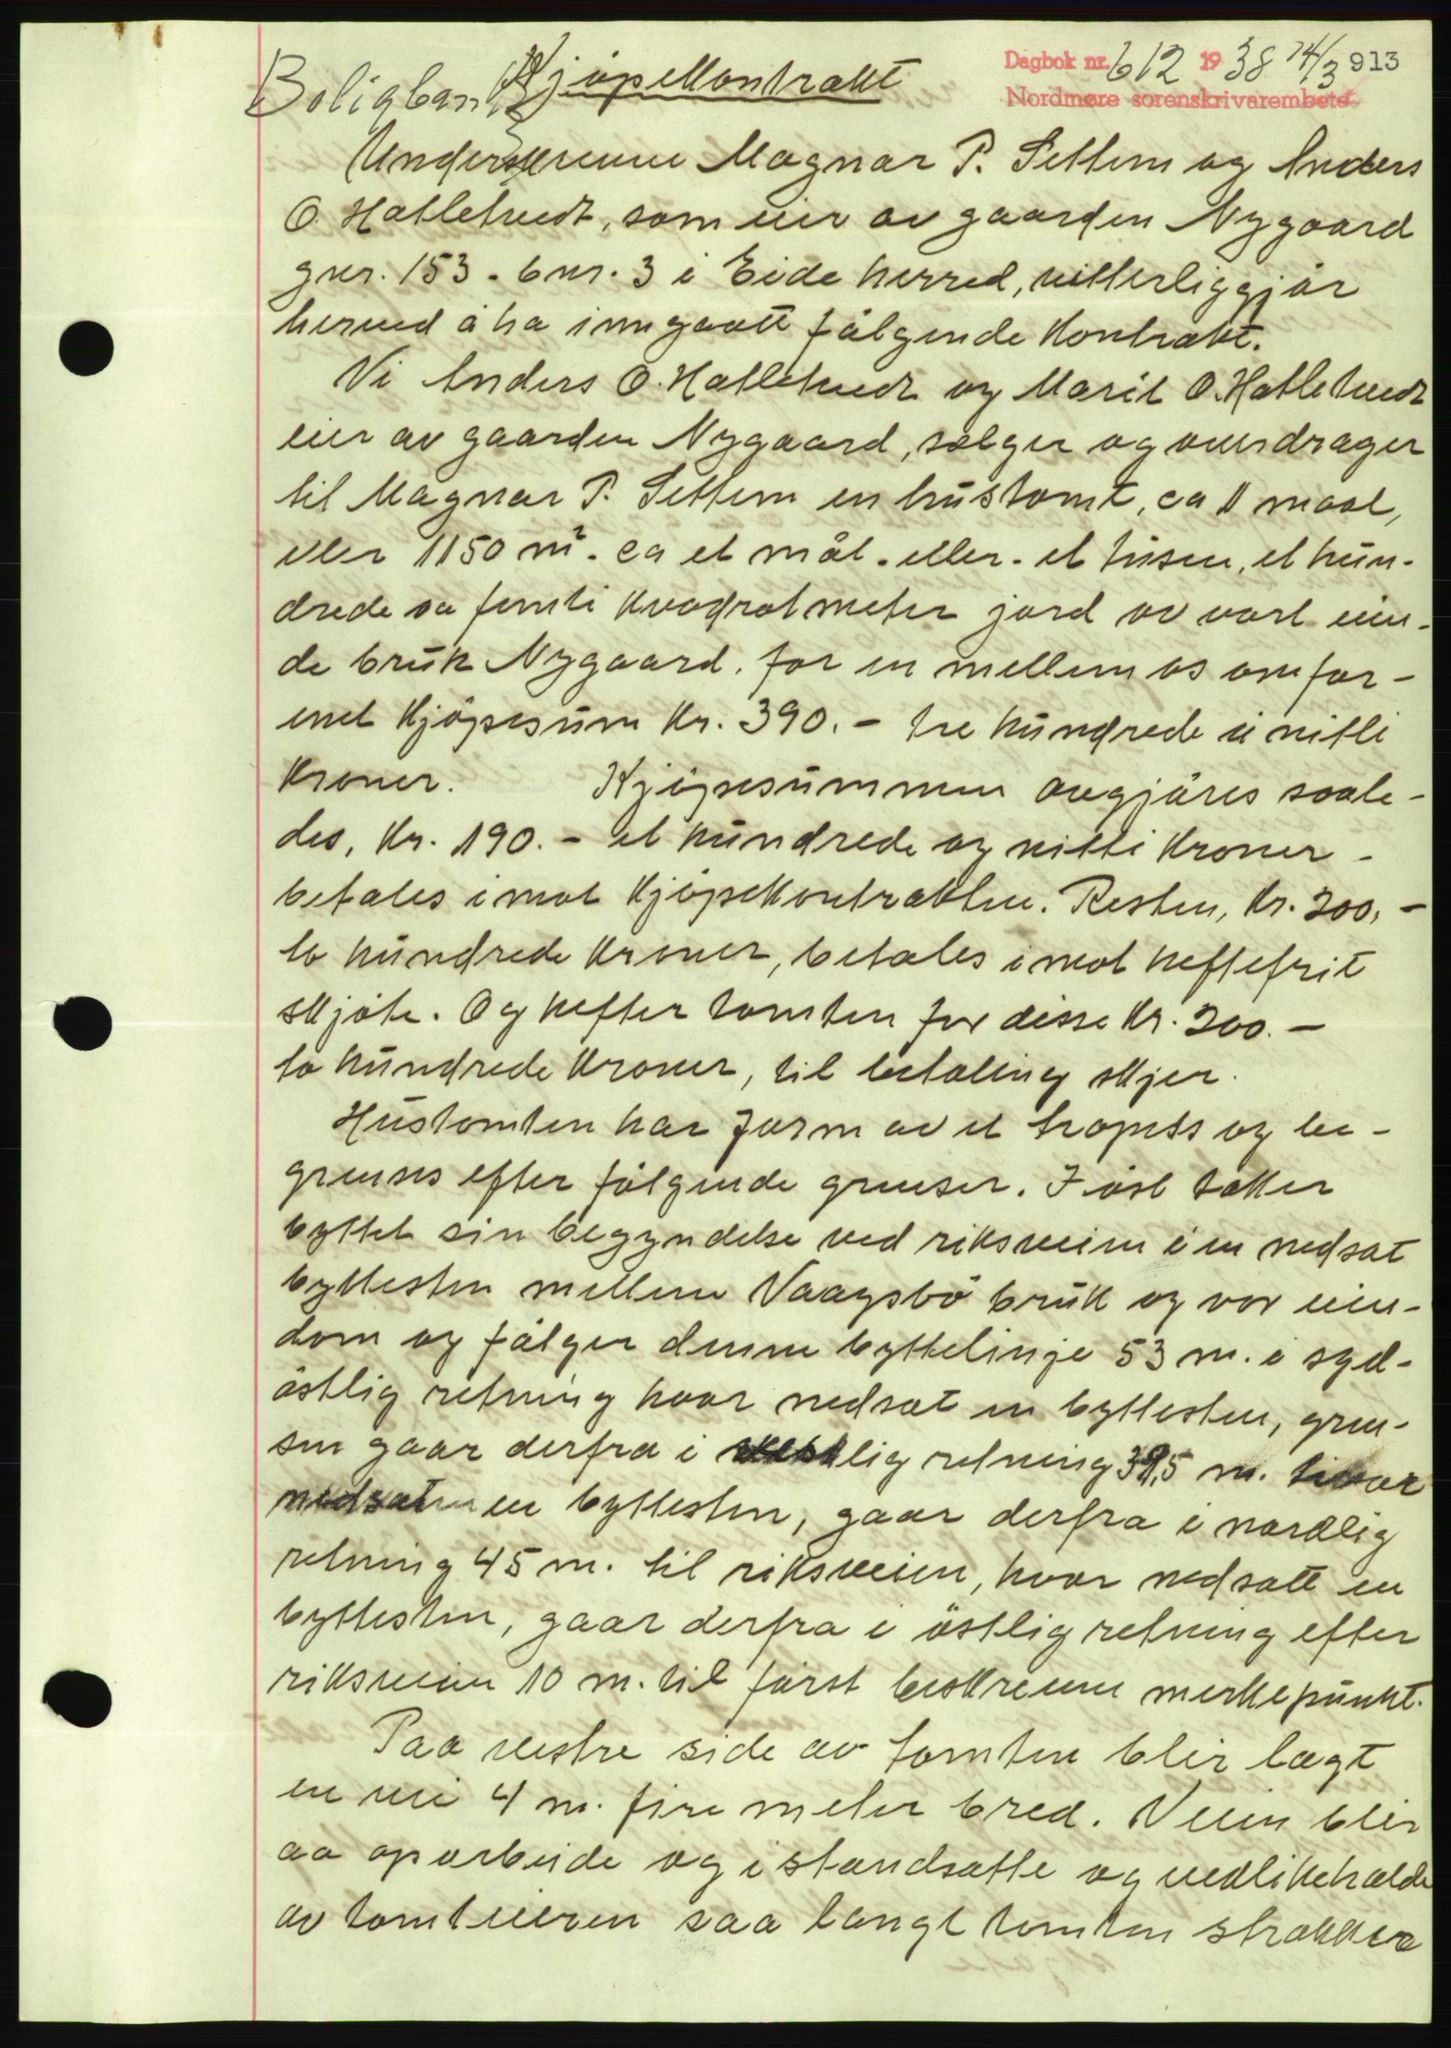 Dagbok nr. 612 1938 14/3 913
Nordmøre sorenskrivarembete
Boligbank
Kjöpekontrakt
Underskrevne Magnar P. Settem og Anders
O. Hatletvedt, som eier av gaarden Nygaard
gnr. 153 - bnr. 3 i Eide herred, vitterliggjör
herved å ha inngaatt fölgende Kontrakt.
Vi Anders O. Hatletvedt og Marit O. Hatletvedt
eier av gaarden Nygaard, selger og overdrager
til Magnar P. Settem en hustomt, ca 1 maal,
eller 1150 m². ca et mål - eller - et tusen, et hun-
drede og femti kvadratmeter jord av vort eien-
de bruk Nygaard. for en mellem os omfor-
enet Kjöpesum Kr. 390.- tre hundrede å nitti
Kroner. Kjöpesummen avgjöres saale-
des, Kr. 190.- et hundrede og nitti Kroner -
betales imot Kjöpekontrakten. Resten, Kr. 200,-
to hundrede Kroner, betales imot heftefrit
skjöte. Og hefter tomten for disse Kr. 200.-
to hundrede Kroner, til betaling skjer.
Hustomten har form av et trapets og be-
grenses efter fölgende grenser. I öst takker
byttet sin begyndelse ved riksveien i en nedsat
byttesten mellem Vaagsbö bruk og vor eien-
dom og fölger denne byttelinje 53 m. i syd-
östlig retning hvor nedsat en byttesten, gren-
sen gaar derfra i vestlig retning 39,5 m. hvor
nedsat en byttesten, gaar derfra i nordlig
retning 45 m. til riksveien, hvor nedsatt en
byttesten, gaar derfra i östlig retning efter
riksveien 10 m. til först beskrevne merkepunkt.
Paa vestre side av tomten blir lagt
en vei 4 m. fire meter bred. Veien blir
aa oparbeide og istandsatte og vedlikeholde
av tomteieren saa langt tomten strækker